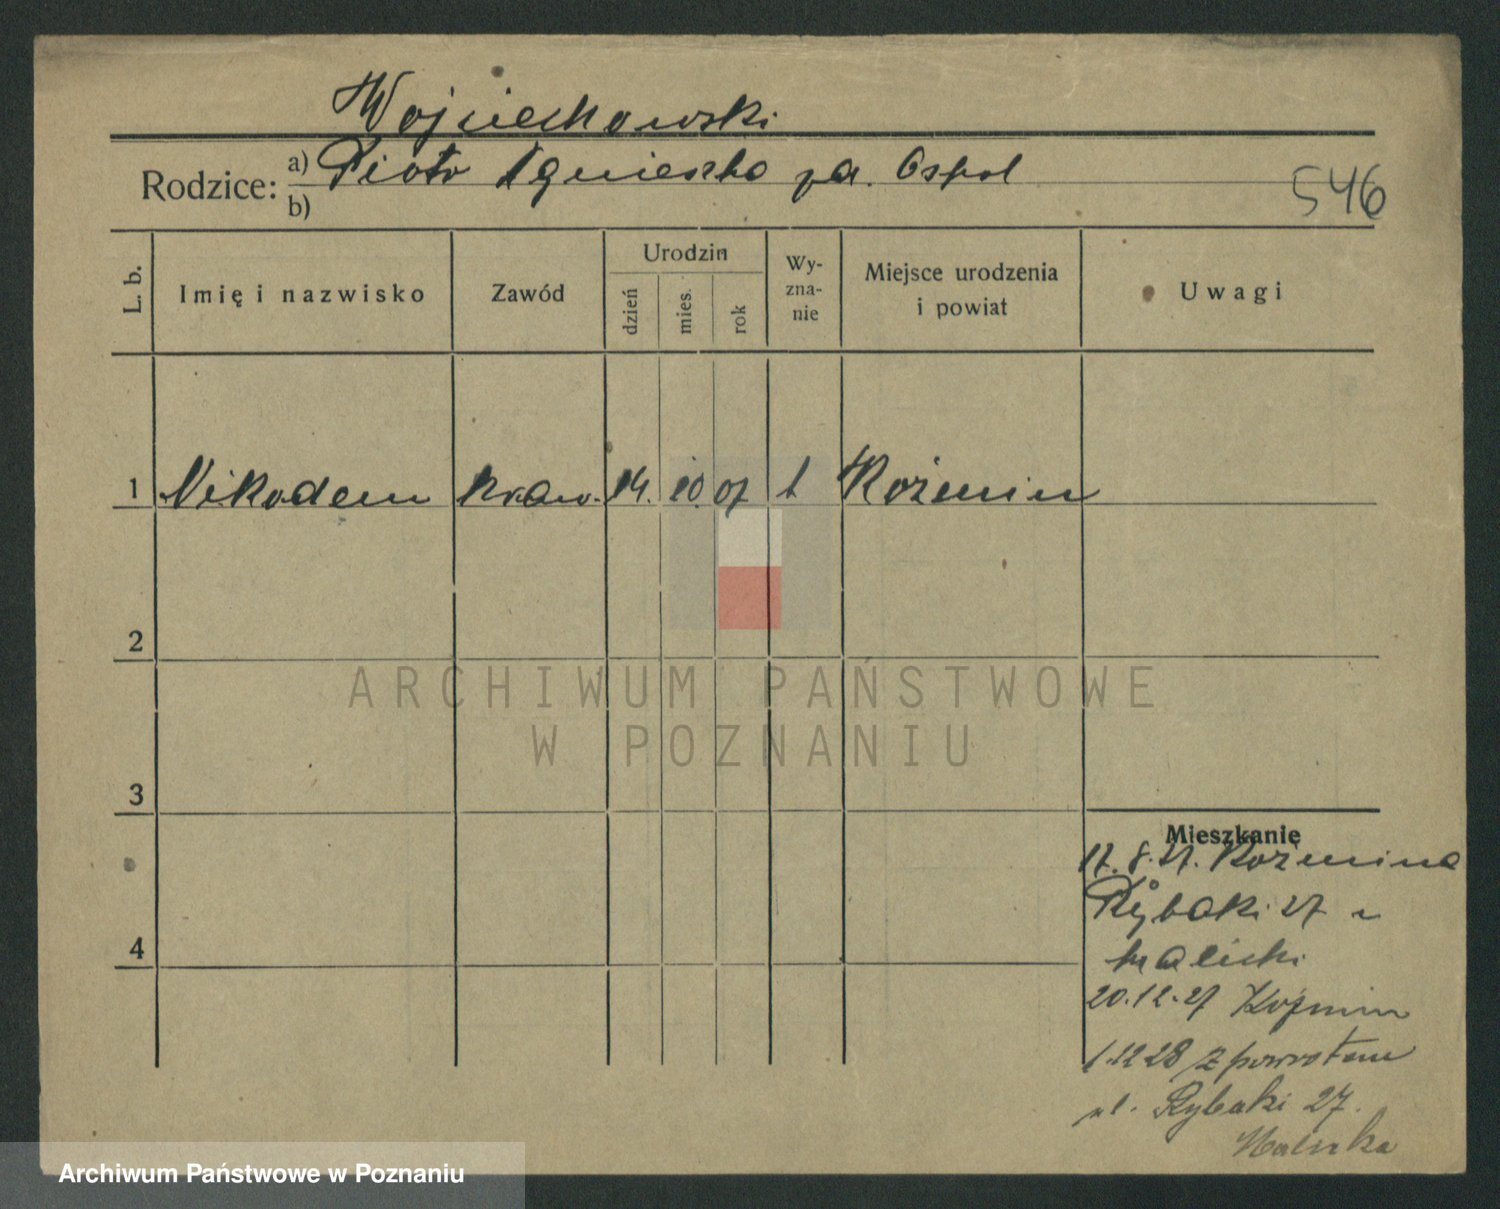 Wojciechowski
Rodzice: a) Piotr Agnieszka
b)
546
L. b.
Imię i nazwisko
Zawód
Urodzin
dzień
mies.
rok
Wy-
zna-
nie
Miejsce urodzenia
i powiat
Uwagi
1 Nikodem kraw. 14. 10. 07 Koźmin
2
3
4
Mieszkanie
17. 8. 27. Koźmina
Rybaki 27 u
20.12.27 Koźmin
1.12 28 z powrotem
ul. Rybaki 27.
ARCHIWUM PAŃSTWOWE
W POZNANIU
Archiwum Państwowe w Poznaniu